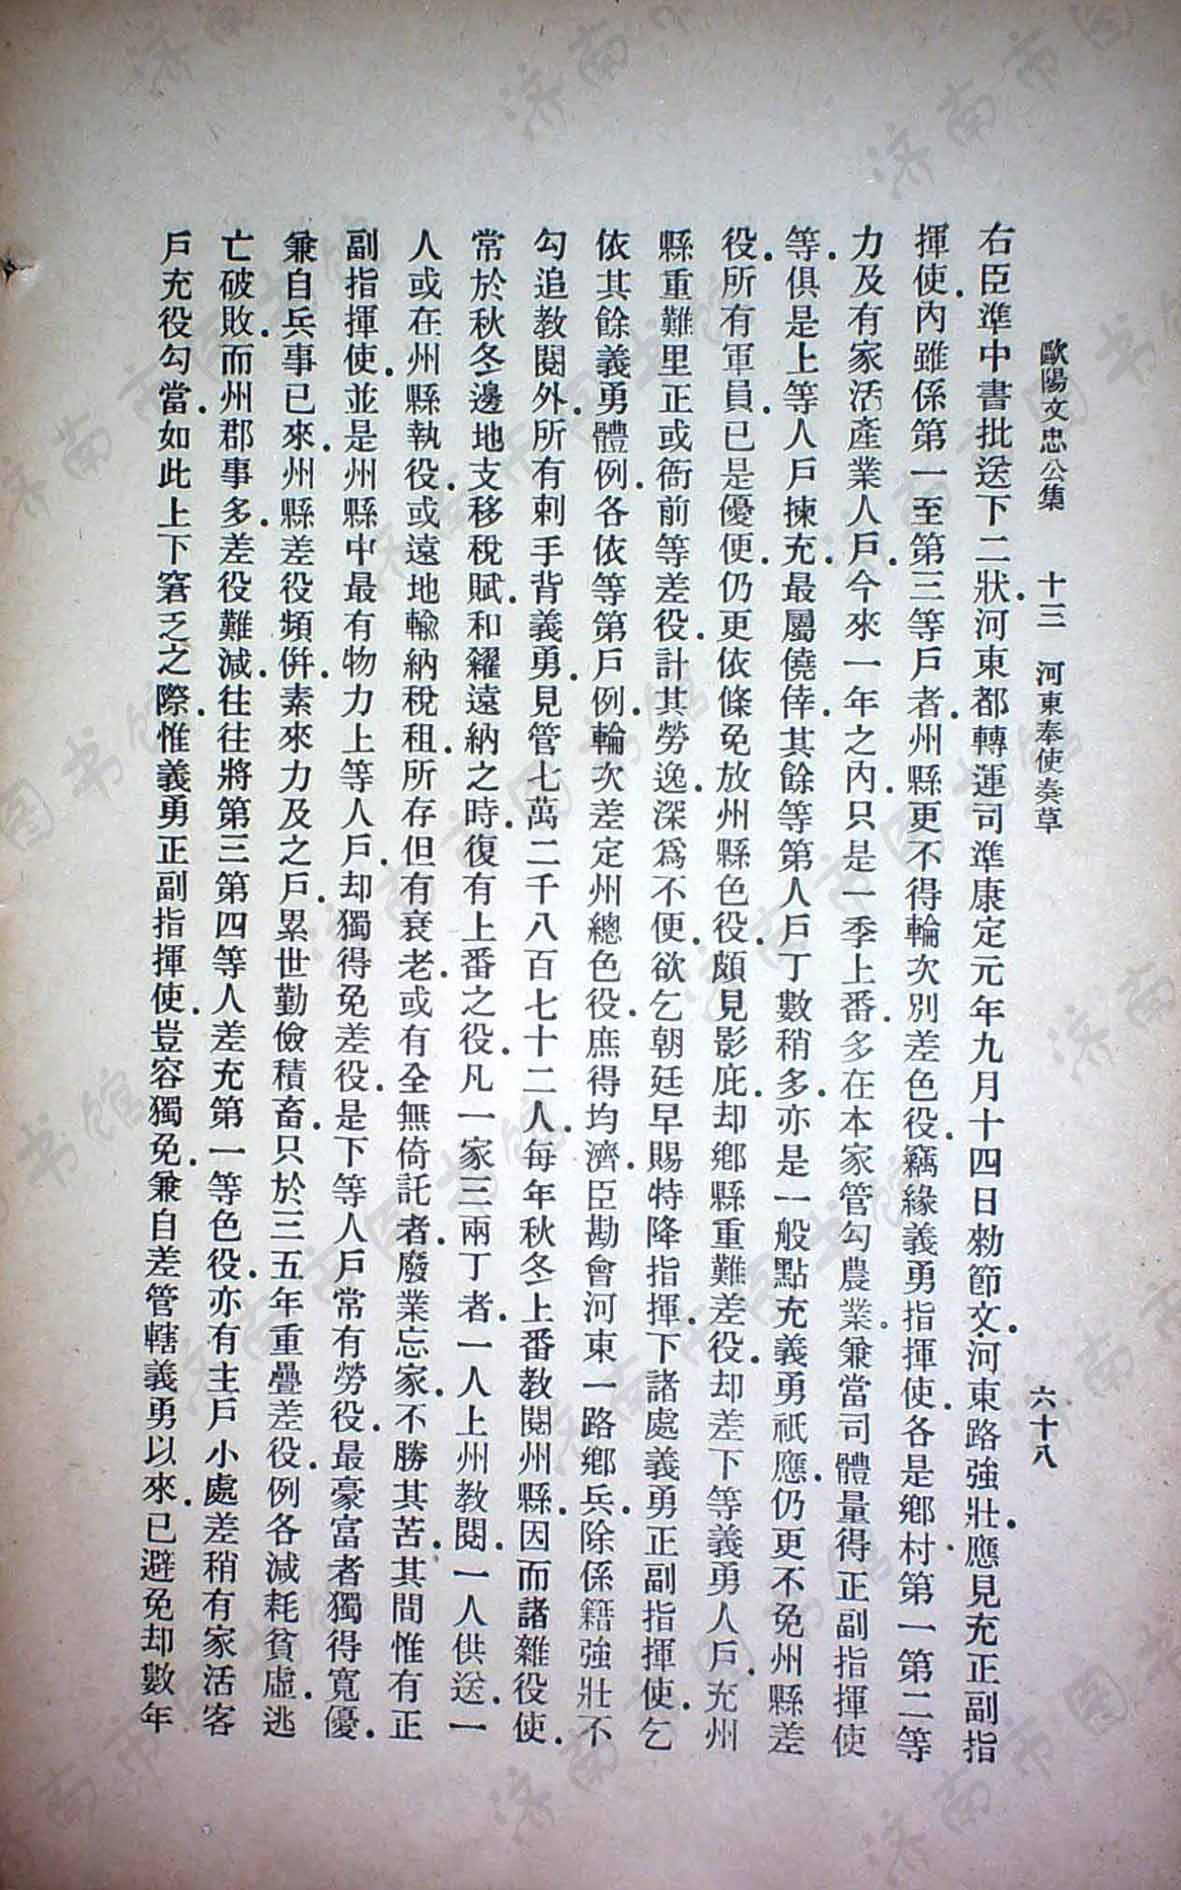 歐陽文忠公集　十三　河東奉使奏草　六十八
右臣準中書批送下二狀.河東都轉運司準康定元年九月十四日勑節文.河東路強壯.應見充正副指
揮使.內雖係第一至第三等戶者.州縣更不得輪次別差色役.竊緣義勇指揮使.各是鄉村第一第二等
力及有家活產業人戶.今來一年之內.只是一季上番.多在本家管勾農業。兼當司體量得正副指揮使
等.俱是上等人戶揀充.最屬僥倖.其餘等第人戶丁數稍多.亦是一般點充義勇祇應.仍更不免州縣差
役.所有軍員.已是優便.仍更依條免放州縣色役.頗見影庇.却鄉縣重難差役.却差下等義勇人戶.充州
縣重難里正或衙前等差役.計其勞逸.深爲不便.欲乞朝廷早賜特降指揮.下諸處義勇正副指揮使.乞
依其餘義勇體例.各依等第戶例.輪次差定州總色役.庶得均濟.臣勘會河東一路鄉兵.除係籍強壯不
勾追教閱外.所有刺手背義勇.見管七萬二千八百七十二人.每年秋冬上番教閱州縣.因而諸雜役使.
常於秋冬邊地支移稅賦.和糴遠納之時.復有上番之役.凡一家三兩丁者.一人上州教閱.一人供送.一
人或在州縣執役.或遠地輸納稅租.所存但有衰老.或有全無倚託者.廢業忘家.不勝其苦.其間惟有正
副指揮使.並是州縣中最有物力上等人戶.却獨得免差役.是下等人戶常有勞役.最豪富者獨得寬優.
兼自兵事已來.州縣差役頻併.素來力及之戶.累世勤儉積畜.只於三五年重疊差役.例各減耗貧虛.逃
亡破敗.而州郡事多.差役難減.往往將第三第四等人差充第一等色役.亦有主戶小處差稍有家活客
戶充役勾當.如此上下窘乏之際.惟義勇正副指揮使.豈容獨免.兼自差管轄義勇以來.已避免却數年